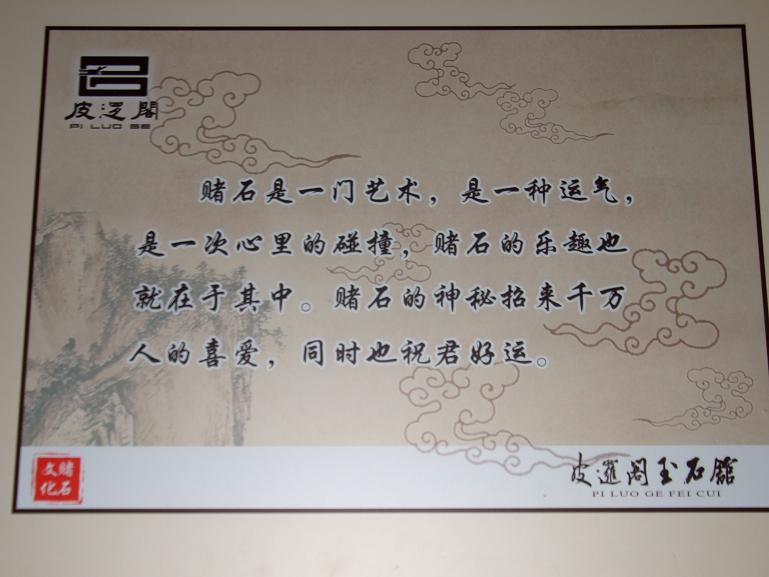 皮逻阁
PI LUO GE
赌石是一门艺术，是一种运气，
是一次心里的碰撞，赌石的乐趣也
就在于其中。赌石的神秘招来千万
人的喜爱，同时也祝君好运。
赌石
文化
皮邏阁玉石館
PI LUO GE FEI CUI